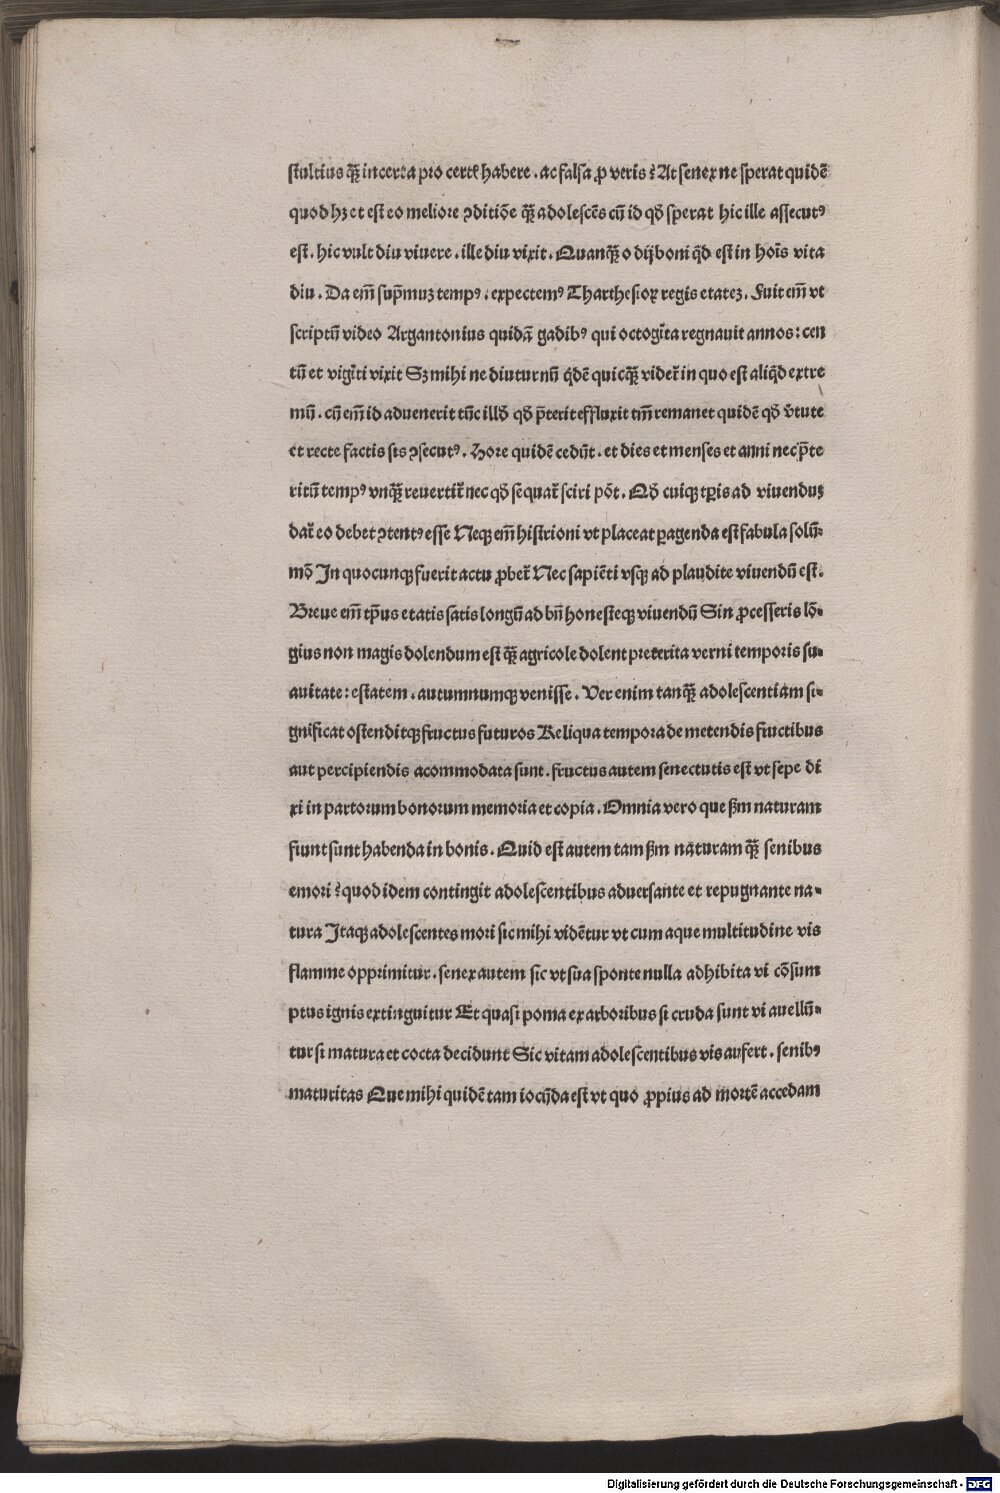 stultius qꝫ̃ incerta pro certꝭ habere . ac falsa ꝓ veris ? At senex ne sperat quidẽ
quod hꝫ et est eo meliore ꝯditiõe qꝫ̃ adolescẽs cũ id qð sperat hic ille assecutꝰ
est . hic vult diu viuere . ille diu vixit . Quanqꝫ̃ o dij boni qͥd est in hoĩs vita
diu . Da em̃ sup̃muꝫ tempꝰ . expectemꝰ Tharthesioꝝ regis etateꝫ . Fuit em̃ vt
scriptũ video Argantonius quidã gadibꝰ qui octogĩta regnauit annos : cen
tũ et vigĩti vixit Sꝫ mihi ne diuturnũ qͥdẽ quicqꝫ̃ videt̃ in quo est aliqͥd extre
mũ . cũ em̃ id aduenerit tũc illð qð p̃terit effluxit tm̃ remanet quidẽ qð ṽtute
et recte factis sis ꝯsecutꝰ . Hore quidẽ cedũt . et dies et menses et anni nec p̃te
ritũ tempꝰ vnqꝫ̃ reuertit̃ nec qð sequat̃ sciri põt . Qð cuiqꝫ tp̃is ad viuenduꝫ
dat̃ eo debet ꝯtentꝰ esse Neqꝫ em̃ histrioni vt placeat ꝑagenda est fabula solũ-
mõ In quocunqꝫ fuerit actu ꝓbet̃ Nec sapiẽti vsqꝫ ad plaudite viuendũ est .
Breue em̃ tp̃us etatis satis longũ ad bñ honesteqꝫ viuendũ Sin ꝓcesseris lõ-
gius non magis dolendum est qꝫ̃ agricole dolent preterita verni temporis su-
auitate : estatem . autumnumqꝫ venisse . Ver enim tanqꝫ̃ adolescentiam si-
gnificat ostenditqꝫ fructus futuros Reliqua tempora de metendis fructibus
aut percipiendis acommodata sunt . fructus autem senectutis est vt sepe di
xi in partorum bonorum memoria et copia . Omnia vero que ẞm naturam
fiunt sunt habenda in bonis . Quid est autem tam ẞm naturam qꝫ̃ senibus
emori ? quod idem contingit adolescentibus aduersante et repugnante na-
tura Itaqꝫ adolescentes mori sic mihi vidẽtur vt cum aque multitudine vis
flamme opprimitur . senex autem sic vt sua sponte nulla adhibita vi cõsum
ptus ignis extinguitur Et quasi poma ex arboribus si cruda sunt vi auellũ-
tur si matura et cocta decidunt Sic vitam adolescentibus vis aufert . senibꝰ
maturitas Que mihi quidẽ tam iocũda est vt quo ꝓpius ad mortẽ accedam
Digitalisierung gefördert durch die Deutsche Forschungsgemeinschaft - DFG